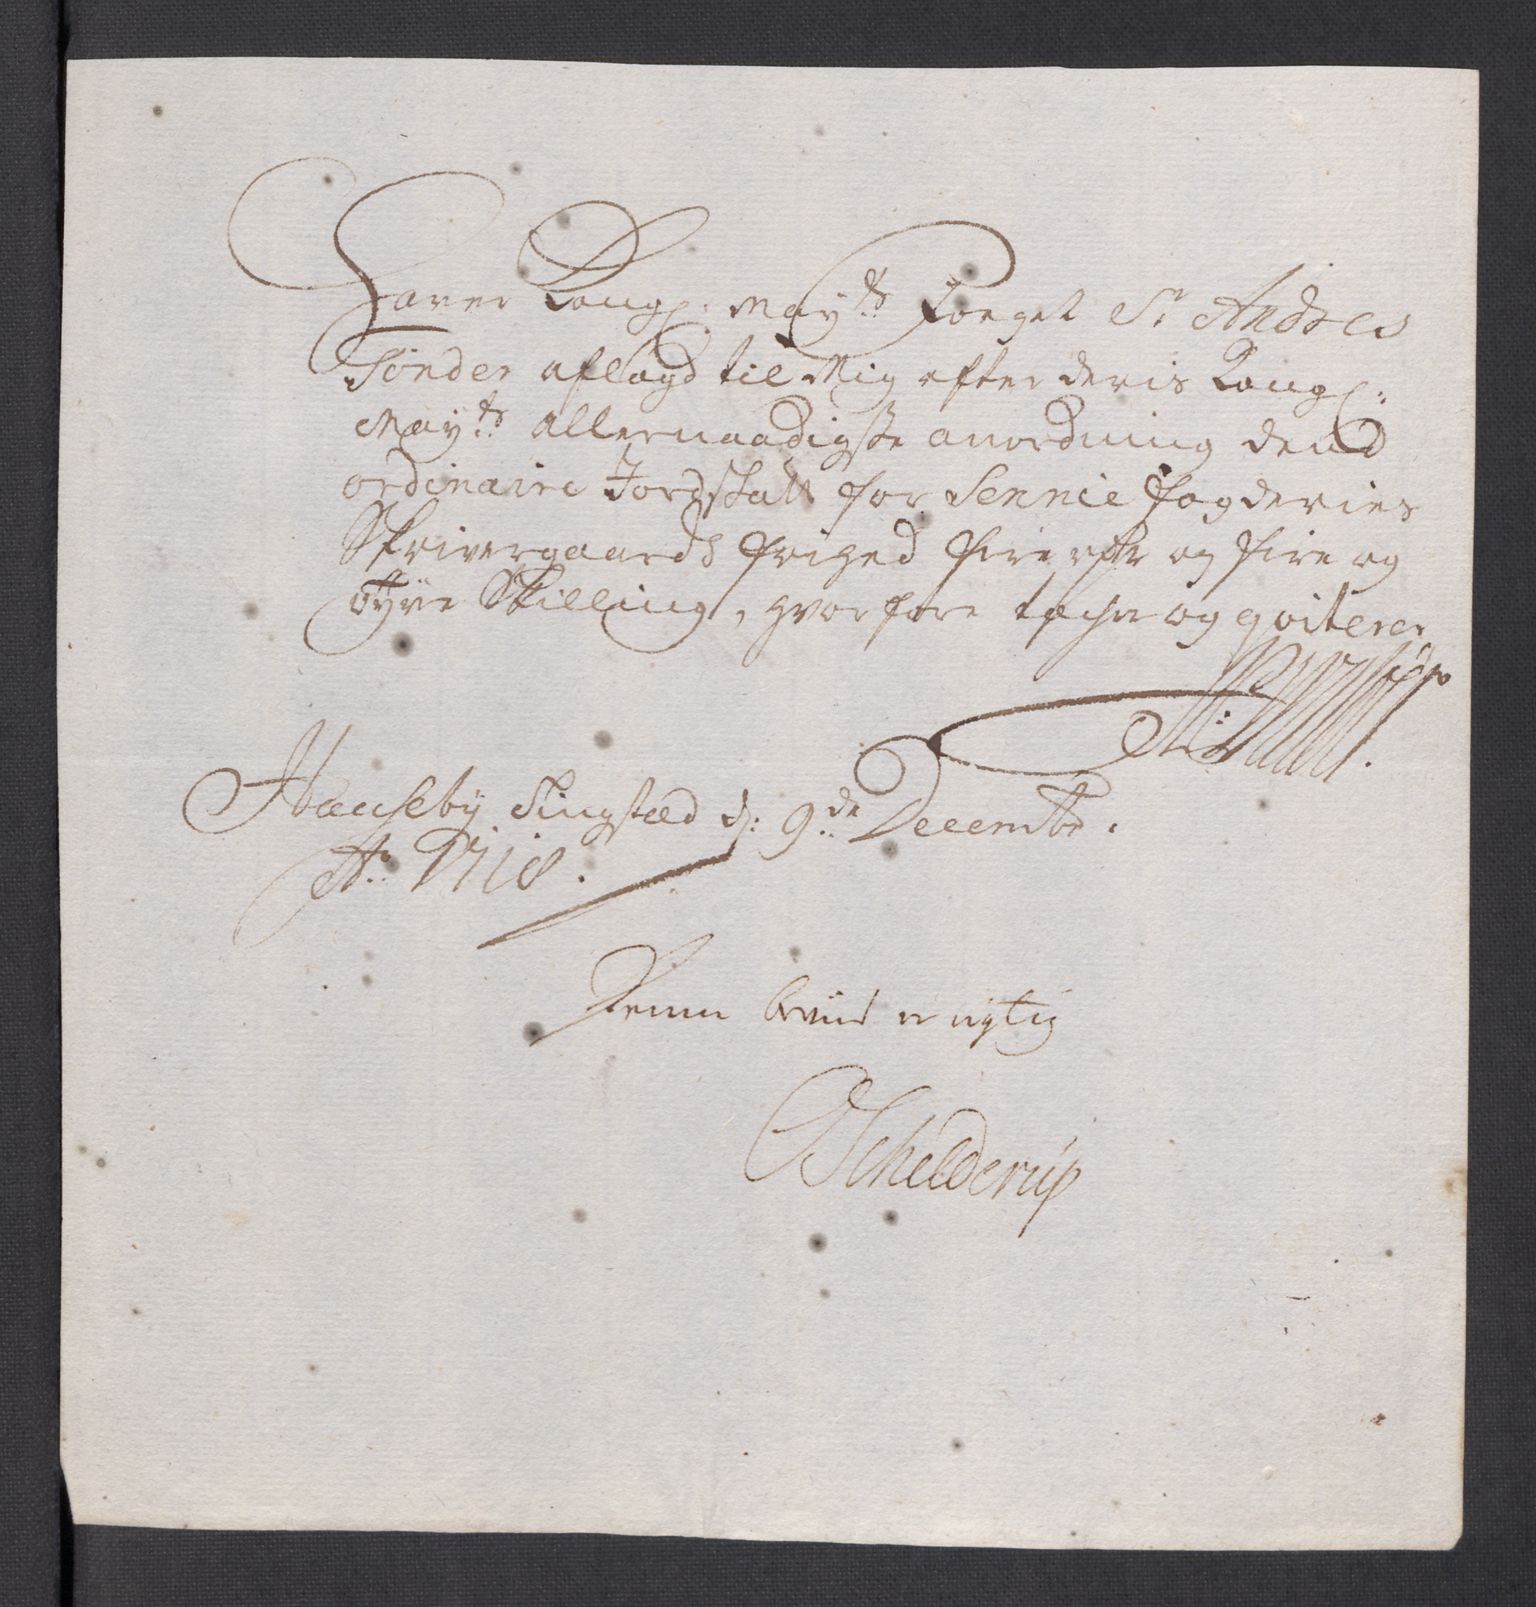 Haver Kongl: Mayts Foeget Sr Andres
Tønder aflagd til Mig efter deris Kongl:
Mayts allernaadigste anordning dend
ordinaire Jordskatt for Sennie fogderies
Skrivergaards frihed fire rdr og fire og
tyve Skilling, hvorfore tacher og qviterer
Hansebÿ Tingstæd d: 9de Decembr.
Ao 1718.
Denne er rigtig
OSchelderup